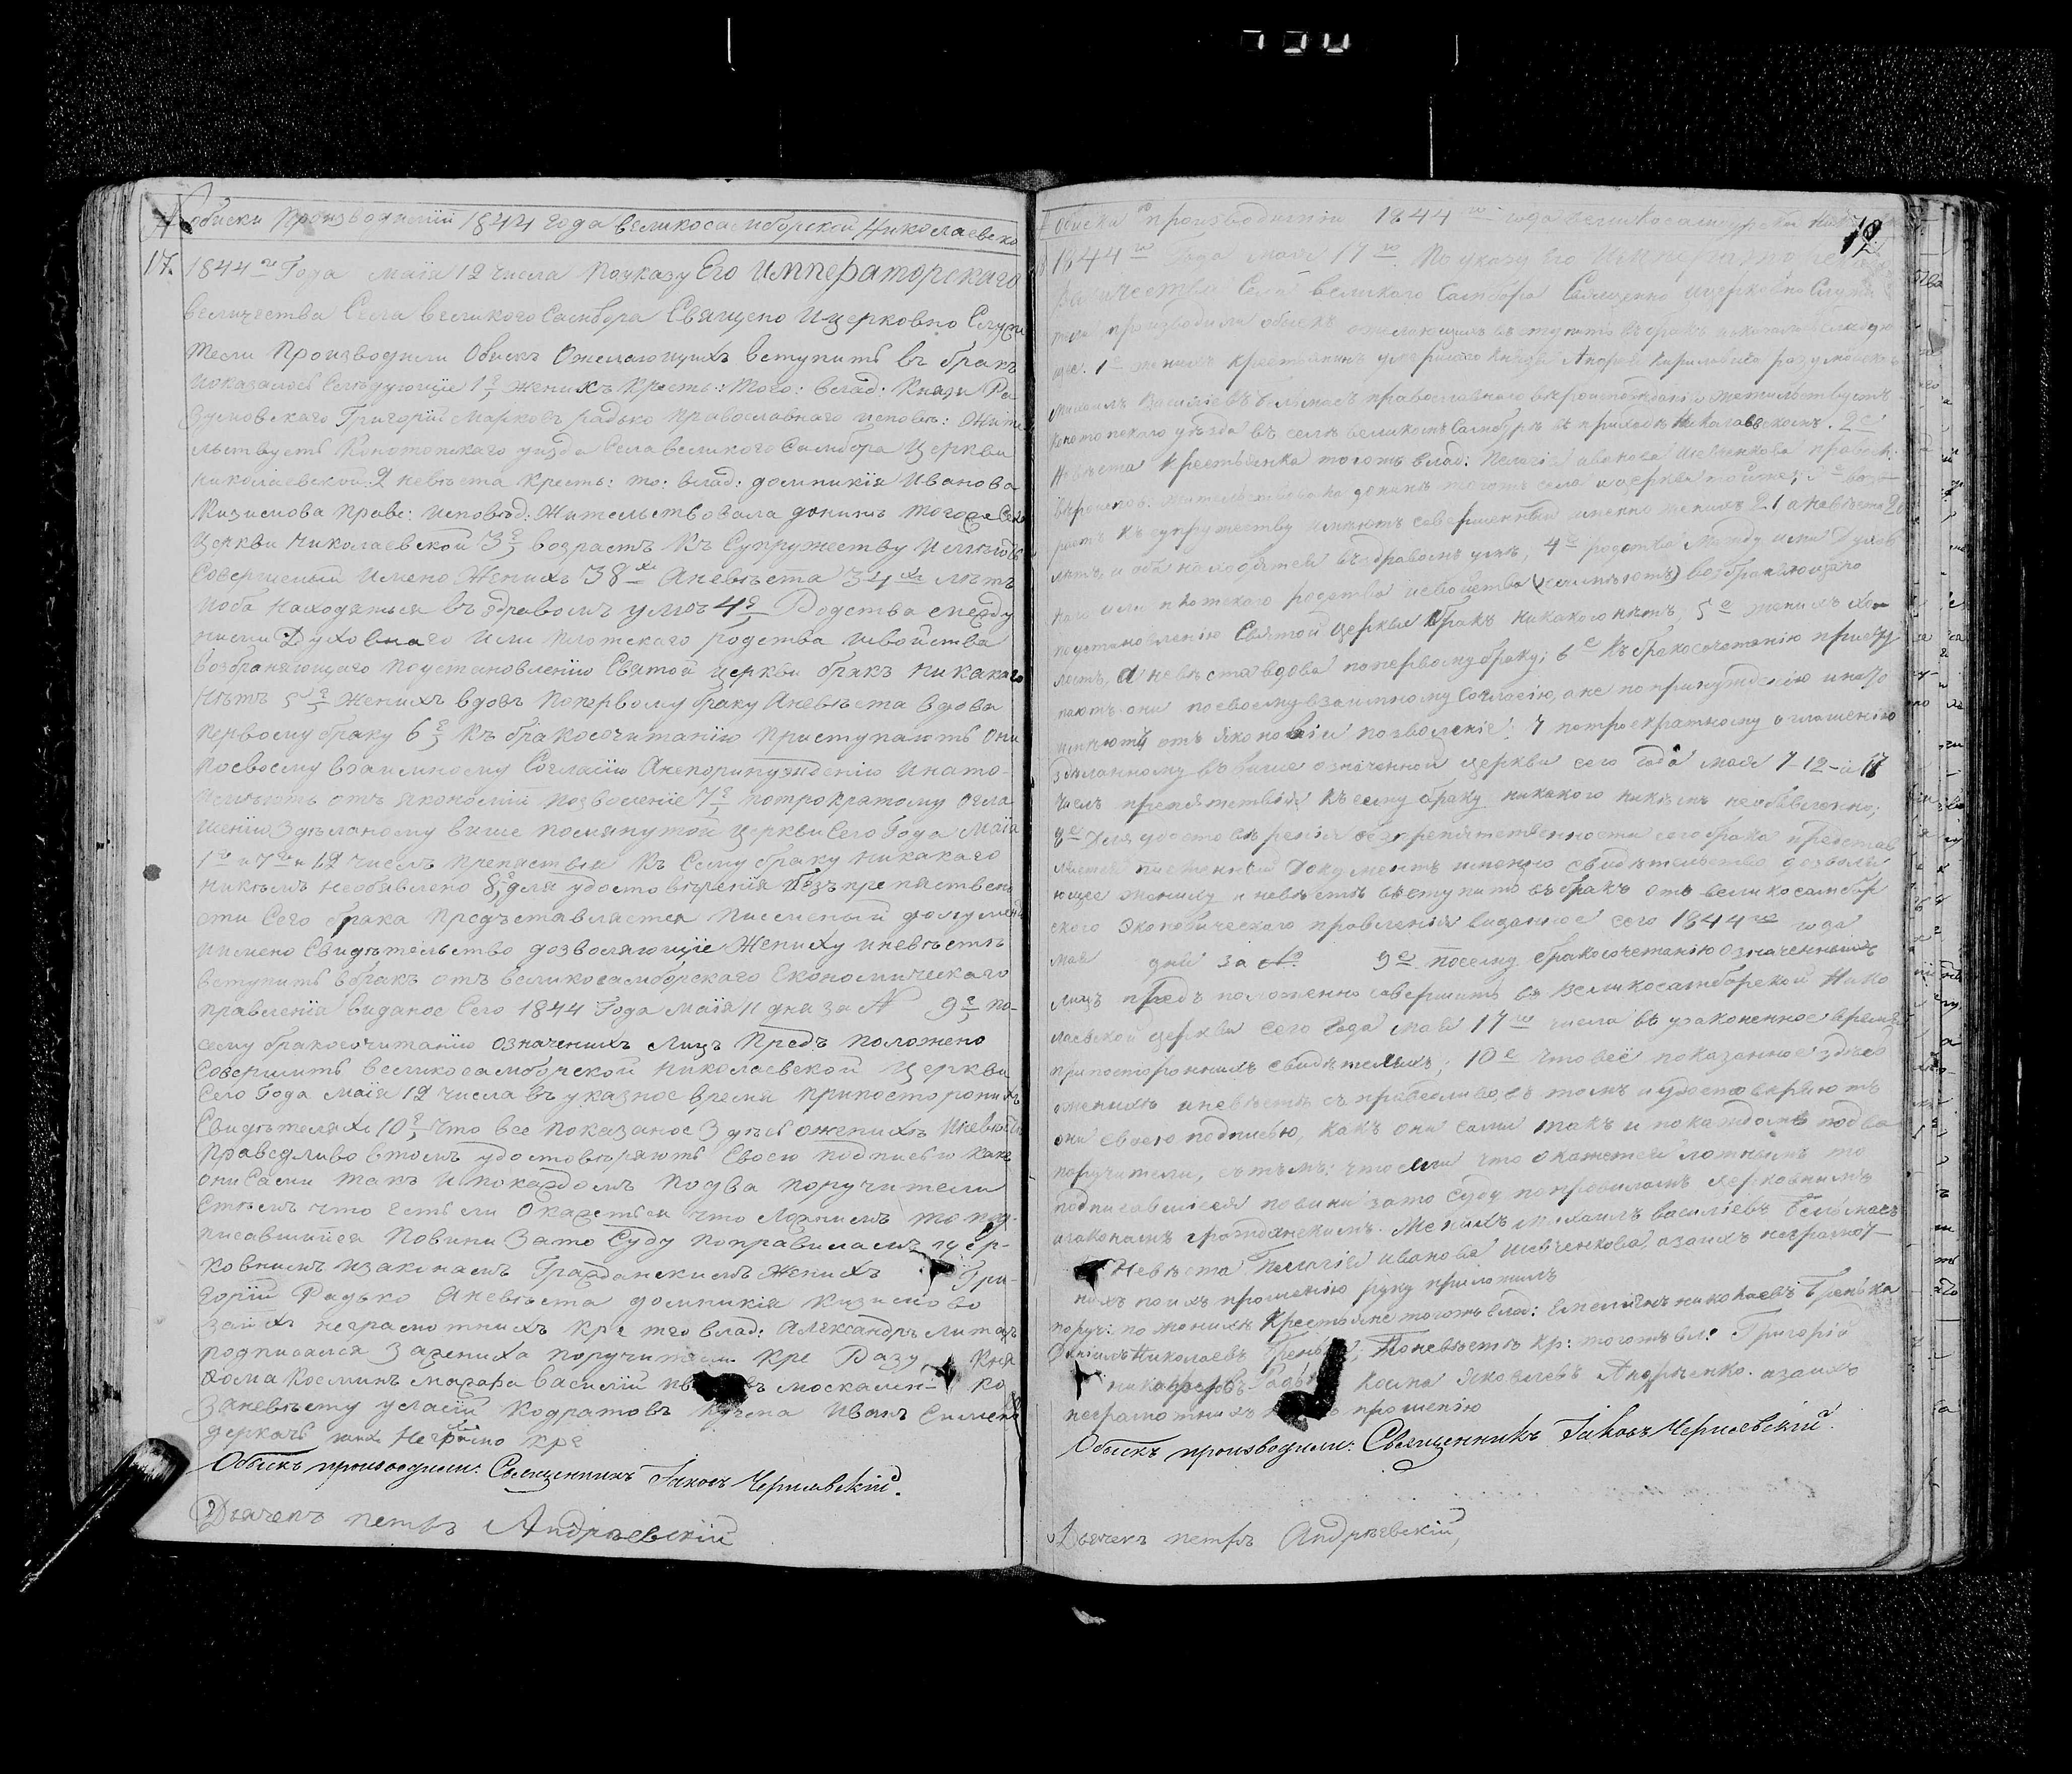 Обиски Производнешй 1844 года великосамборской Николаевско
17. 1844го Года маїя 12 числа Поуказу Его Императорскаго
величества Села великого Самбора Священо Ицерковно Служи
тели Производили Обискъ Ожелающихъ вступить въ бракъ
Показалось Следующїе 1е, женихъ Кресть: Того: влад: Князя Ра
зумовскаго Григорїй Марковъ радько православнаго исповъ: Ожите
льствуетъ Конотопскаго уизда Села великого Самбора Церкви
Николаевской: 2 невѣста кресть: то: влад: домникія Иванова
Кизимова Праве: исповѣд: Жительствовала донинъ тогоже Села
Церкви Николаевской 3е, возрастъ Къ Супружеству Имѣютъ
Совершеный Имено Женихъ 38хъ Аневѣста 34хъ лѣтъ
Иоба Находяться въ здравомъ умѣ 4е, Родства между
ними Духовнаго Или Плотскаго родства исвойства
возбраняющаго Поустановленїю Святой церкви бракъ никакаго
Нѣтъ 5е, Женихъ вдовъ Поперьвому браку Аневѣста вдова
Первому браку 6е, Къ бракосочитанїю Приступаютъ Они
Посвоему взаимному Согласїю Анепоринужденїю Инато-
Имѣютъ отъ Якономїй Позволенїе 7е, потрократому Огла
шенїю Здѣланому више Помянутой Церкви Сего Года Маїя
1го и 7го и 12 числъ Препяствїя Къ Сему браку никакаго
Никѣмъ Необявлено 8, для удостовѣренїя безъ препяствено
сти Сего брака Предъставляется Писменый документъ
Имено Свидѣтельство дозволяющїе Жениху иневѣстѣ
вступить вбракъ отъ великосамборскаго Економическаго
правленїя виданое Сего 1844 Года маїя 11 дня за № 9е, По-
сему бракосочитанїю означенихъ Лицъ Предъ положено
Совершить великосамборской Николаевской Церкви
Сего Года маїя 12 числа въ указное время припосторонихъ
Свидѣтеляхъ 10е, Что все Показаное Здѣсь оженихъ Иневѣстѣ
Праведливо втомъ удостовѣряютъ Своею подписью какъ
они Сами такъ Ипокаждомъ Подва поручители
Стѣмъ что Естьли Окажеться что Ложнимъ то под-
писавшийся Повини Зато Суду Поправиламъ цер-
ковнимъ изаконамъ Гражданскимъ Женихъ Гри-
горїй Радько Аневѣста домникїя Кизимово
заихъ неграмотнихъ кре того влад: Александръ Литвръ
подписался Зажениха поручители кре Разу Кня
Хома Косминъ магара василїй москален- ко
Заневѣсту Кодратовъ Иванъ Симено
деркачъ Неграмо кре
Обыскъ производили: Священникъ Іаковъ Чернявскій.
Дьячекъ петръ Андрѣевскїй
12
Обиска производимїи 1844го года великосамборской Никола
1844го Года мая 17го. По указу Его Императорскаго
Величества Села великаго Самбора Священно ицерковно Служи
тели производили обискъ ожелающихъ вступить въ бракъ, показалось следую
щее: 1е женихъ крестьянинъ умершаго Князя Андрея Кириловича разумовскаго
Михаилъ Василїевъ православнаго вѣроисповѣданїя жительствуетъ
Конотопскаго уѣзда въ селѣ великомъ Самборѣ въ приходѣ Николаевскомъ. 2е
Невѣста крестьянка тогожъ влад: Пелагїя иванова Шевченкова правосл:
вѣроиспов: жительствовала донинѣ тогожъ села ицеркви тойже; 3е воз-
растъ къ супружеству имѣютъ совершенный именно женихъ 21 а невѣста 20
лѣтъ, и оба находятся въздравомъ умѣ, 4е родства Между ими Духов
наго или плотскаго родства исвойства возбраняющаго
поустановленію Святой Церкви бракъ никакого нѣтъ, 5е женихъ хо-
лостъ, а невѣста вдова поперьвому браку; 6е Къ бракосочетанію присту
паютъ они посвоему взаимному Согласію, ане попринужденію инато
имѣютъ отъ якономіи позволеніе; 7 потроекратному оглашенію
здѣланному въ више означенной церкви сего года мая 7-12-и 17
числъ препятствія къ сему браку никакого никѣмъ необъявлено;
8е Для удостовѣренія безпрепятственности сего брака представ
ляется писменный документъ именно свидѣтельство дозволя
ющее жениху и невѣстѣ вступить въ бракъ отъ великосамбор
ского Экономическаго правленія виданное сего 1844го года
мая дня за № 9е посему бракосочетанію означенныхъ
лицъ предъ положенно совершить въ Великосамборской Нико
лаевской церкви сего Года мая 17го числа въ узаконенное время
припостороннихъ свидѣтеляхъ; 10е Что всё показанное здѣсь
оженихѣ иневѣстѣ справедливо въ томъ иудостовѣряютъ
они своею подписью, какъ они сами такъ и покаждомъ подва
поручители, сътѣмъ: что если что окажется ложнымъ то
подписавшіеся повини зато суду поправиламъ церковнимъ
изаконамъ гражданскимъ. Женихъ Михаилъ василїевъ
Невѣста Пелагія иванова шевченкова, азаихъ неграмот-
нихъ поихъ прошенію руку приложилъ
поруч: по женихѣ крестьяне тогожъ влад: Емельянъ николаевъ Гренька
Даніилъ Николаевъ; Поневѣстѣ кр: тогожъ вл: Григорій
Косма Яковлевъ Андрѣенко. азаихъ
неграмотнихъ прошенію
Обыскъ производили: Священникъ Іаковъ Чернявскій.
Дьячекъ петръ Андрѣевскій,